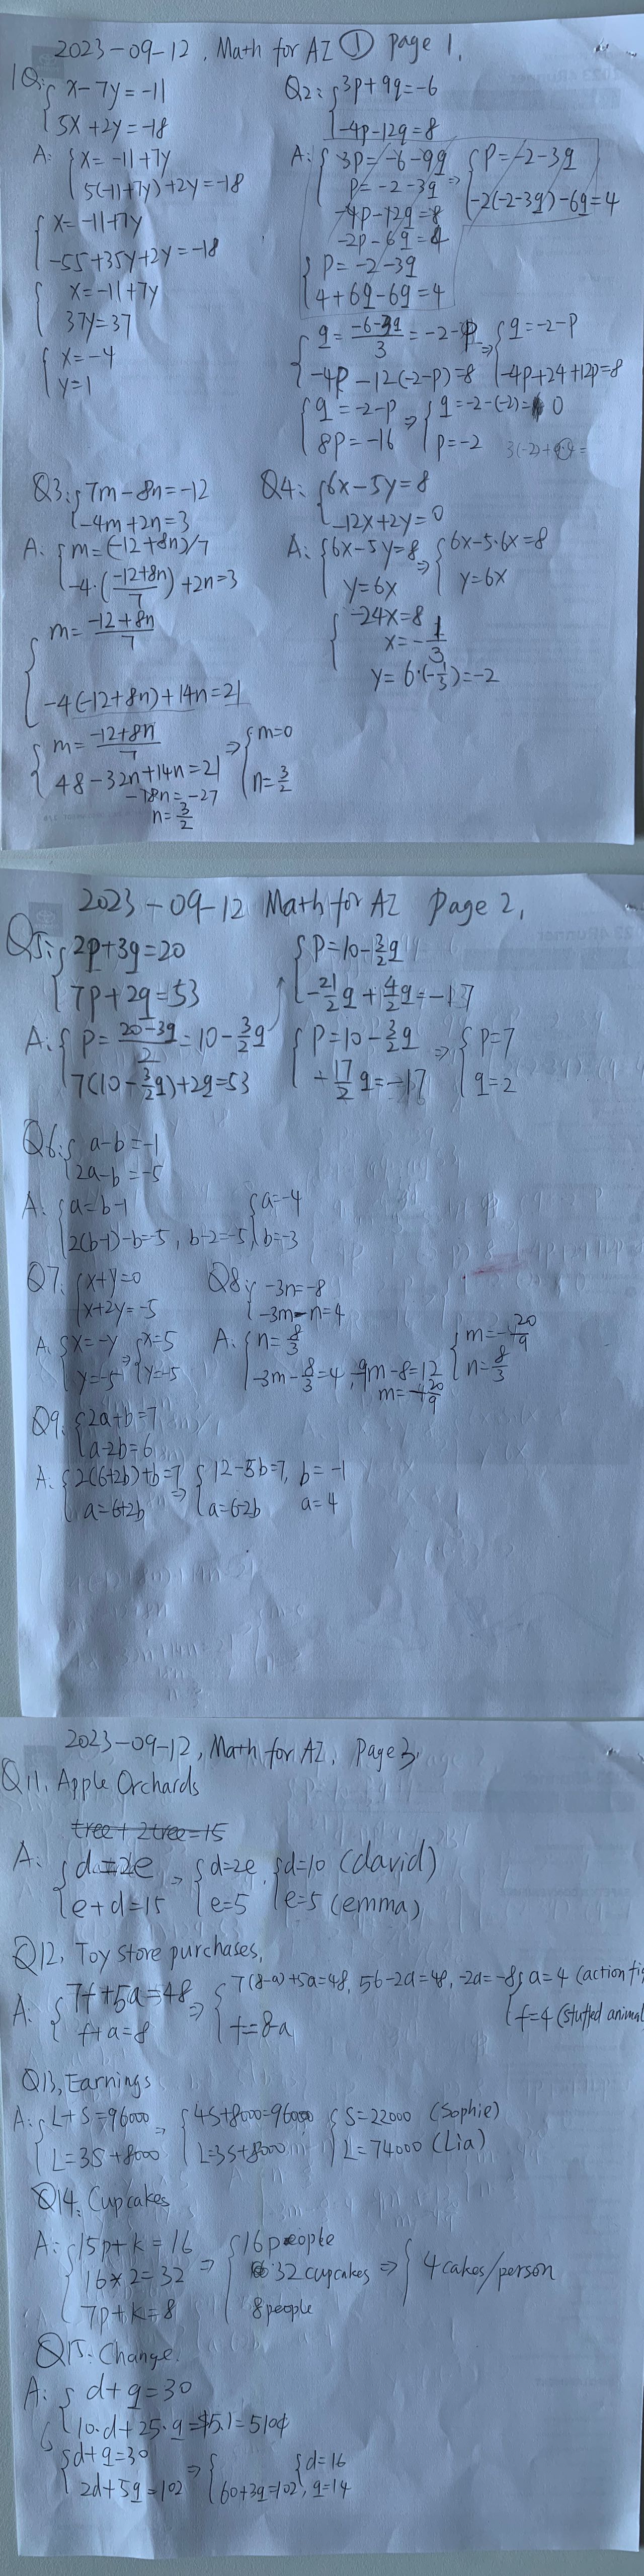 2023-09-12, Math for AZ ① page 1.
1Q: { x-7y=-11
5x+2y=-18
A: { x=-11+7y
5(-11+7y)+2y=-18
{ x=-11+7y
-55+35y+2y=-18
{ x=-11+7y
37y=37
{ x=-4
y=1
Q2: { 3p+9q=-6
-4p-12q=8
A: { 3p=-6-9q
p=-2-3q
-4p-12q=8
-2p-6q=4
⇒ { p=-2-3q
-2(-2-3q)-6q=4
{ p=-2-3q
4+6q-6q=4
{ q=(-6-3q)/3=-2-p
-4p-12(-2-p)=8
⇒ { q=-2-p
-4p+24+12p=8
{ q=-2-p
8p=-16
⇒ { q=-2-(-2)=0
p=-2
Q3: { 7m-8n=-12
-4m+2n=3
A: { m=(-12+8n)/7
-4·((-12+8n)/7)+2n=3
{ m=(-12+8n)/7
-4(-12+8n)+14n=21
{ m=(-12+8n)/7
48-32n+14n=21
-18n=-27
n=3/2
⇒ { m=0
n=3/2
Q4: { 6x-5y=8
-12x+2y=0
A: { 6x-5y=8
y=6x
⇒ { 6x-5·6x=8
y=6x
{ -24x=8
x=-1/3
y=6·(-1/3)=-2
2023-09-12 Math for AZ page 2.
Q5: { 2p+3q=20
7p+2q=53
A: { p=(20-3q)/2=10-3/2q
7(10-3/2q)+2q=53
{ p=10-3/2q
-21/2q+4/2q=-17
{ p=10-3/2q
+17/2q=-17
⇒ { p=7
q=2
Q6: { a-b=-1
2a-b=-5
A: { a=b-1
2(b-1)-b=-5, b-2=-5
{ a=-4
b=-3
Q7: { x+y=0
x+2y=-5
A: { x=-y
y=-5
⇒ { x=5
y=-5
Q8: { -3n=-8
-3m-n=4
A: { n=8/3
-3m-8/3=4, -9m-8=12
m=-20/9
{ m=-20/9
n=8/3
Q9: { 2a+b=7
a-2b=6
A: { 2(6+2b)+b=7
a=6+2b
⇒ { 12-5b=7, b=-1
a=6-2b a=4
2023-09-12, Math for AZ. Page 3.
Q11. Apple Orchards
tree + 2tree=15
A: { d=2e
e+d=15
⇒ { d=2e
e=5
{ d=10 (david)
e=5 (emma)
Q12, Toy store purchases,
A: { 7f+5a=48
f+a=8
⇒ { 7(8-a)+5a=48, 56-2a=48, -2a=-8
f=8-a
{ a=4 (action fi
f=4 (stuffed animal
Q13, Earnings
A: { L+S=96000
L=3S+8000
⇒ { 4S+8000=96000
L=3S+8000
{ S=22000 (Sophie)
L=74000 (Lia)
Q14: Cupcakes
A: { 15p+k=16
16*2=32
7p+k=8
⇒ { 16people
32 cupcakes
8people
⇒ { 4 cakes/person
Q15: Change.
A: { d+q=30
10·d+25·q=$5.1=510¢
{ d+q=30
2d+5q=102
⇒ { 60+3q=102,
{ d=16
q=14